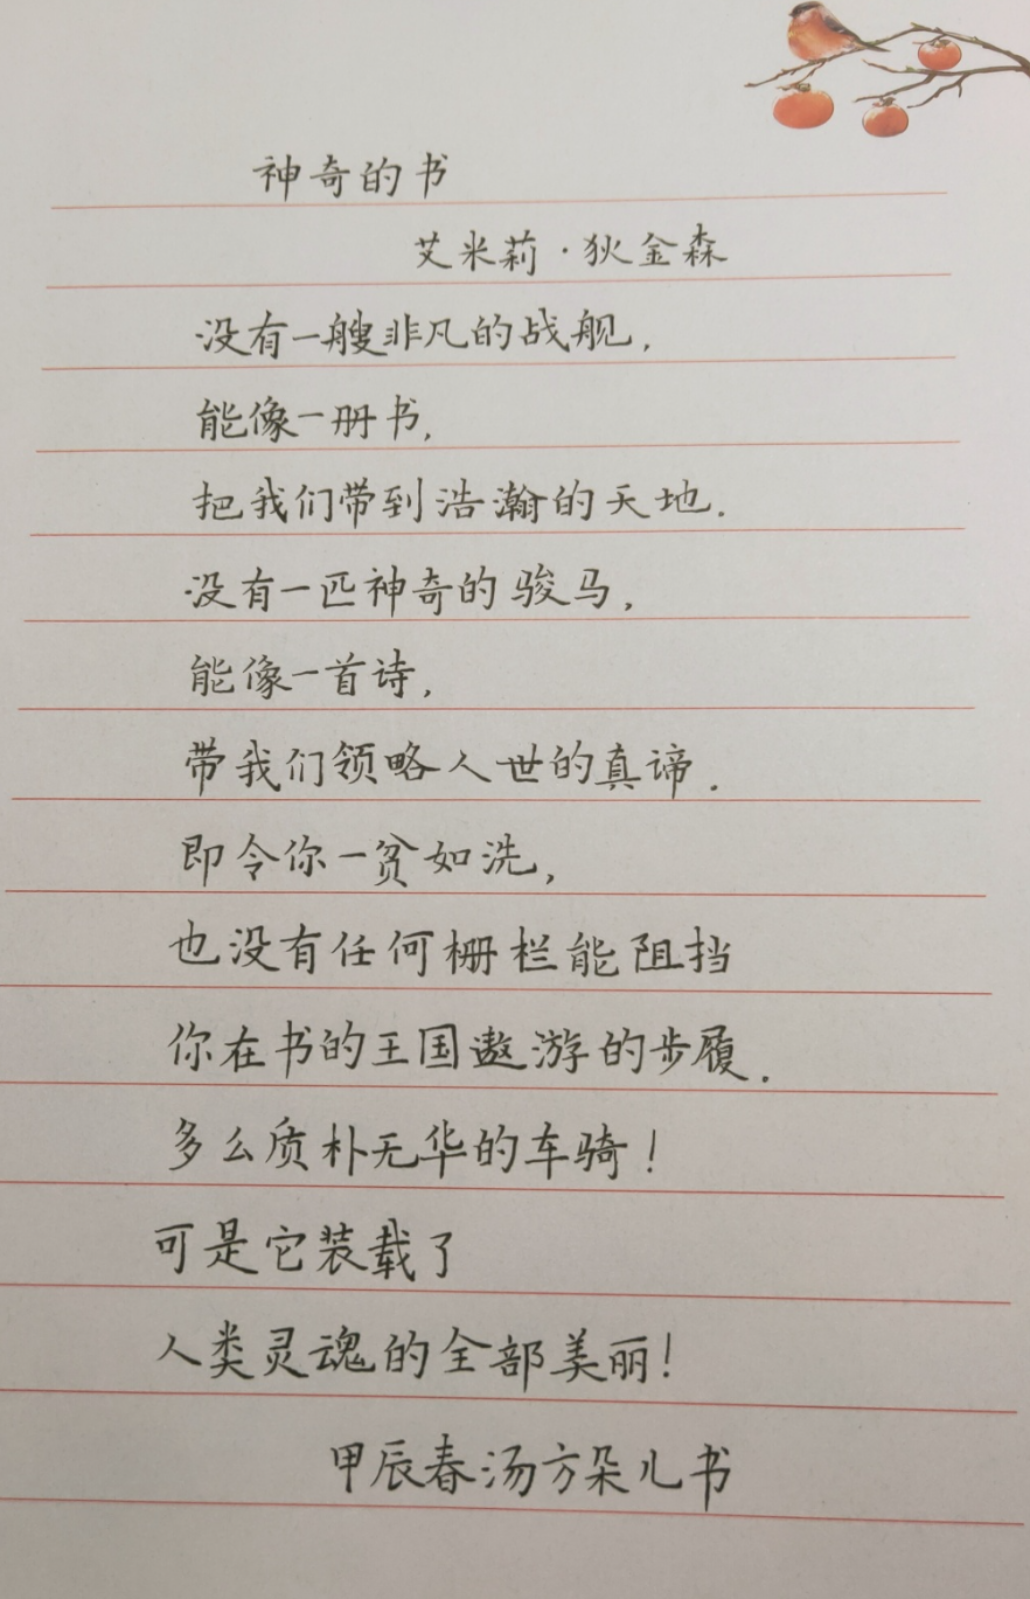 神奇的书
艾米莉·狄金森
没有一艘非凡的战舰,
能像一册书,
把我们带到浩瀚的天地.
没有一匹神奇的骏马,
能像一首诗,
带我们领略人世的真谛.
即令你一贫如洗,
也没有任何栅栏能阻挡
你在书的王国遨游的步履.
多么质朴无华的车骑!
可是它装载了
人类灵魂的全部美丽!
甲辰春汤方朵儿书